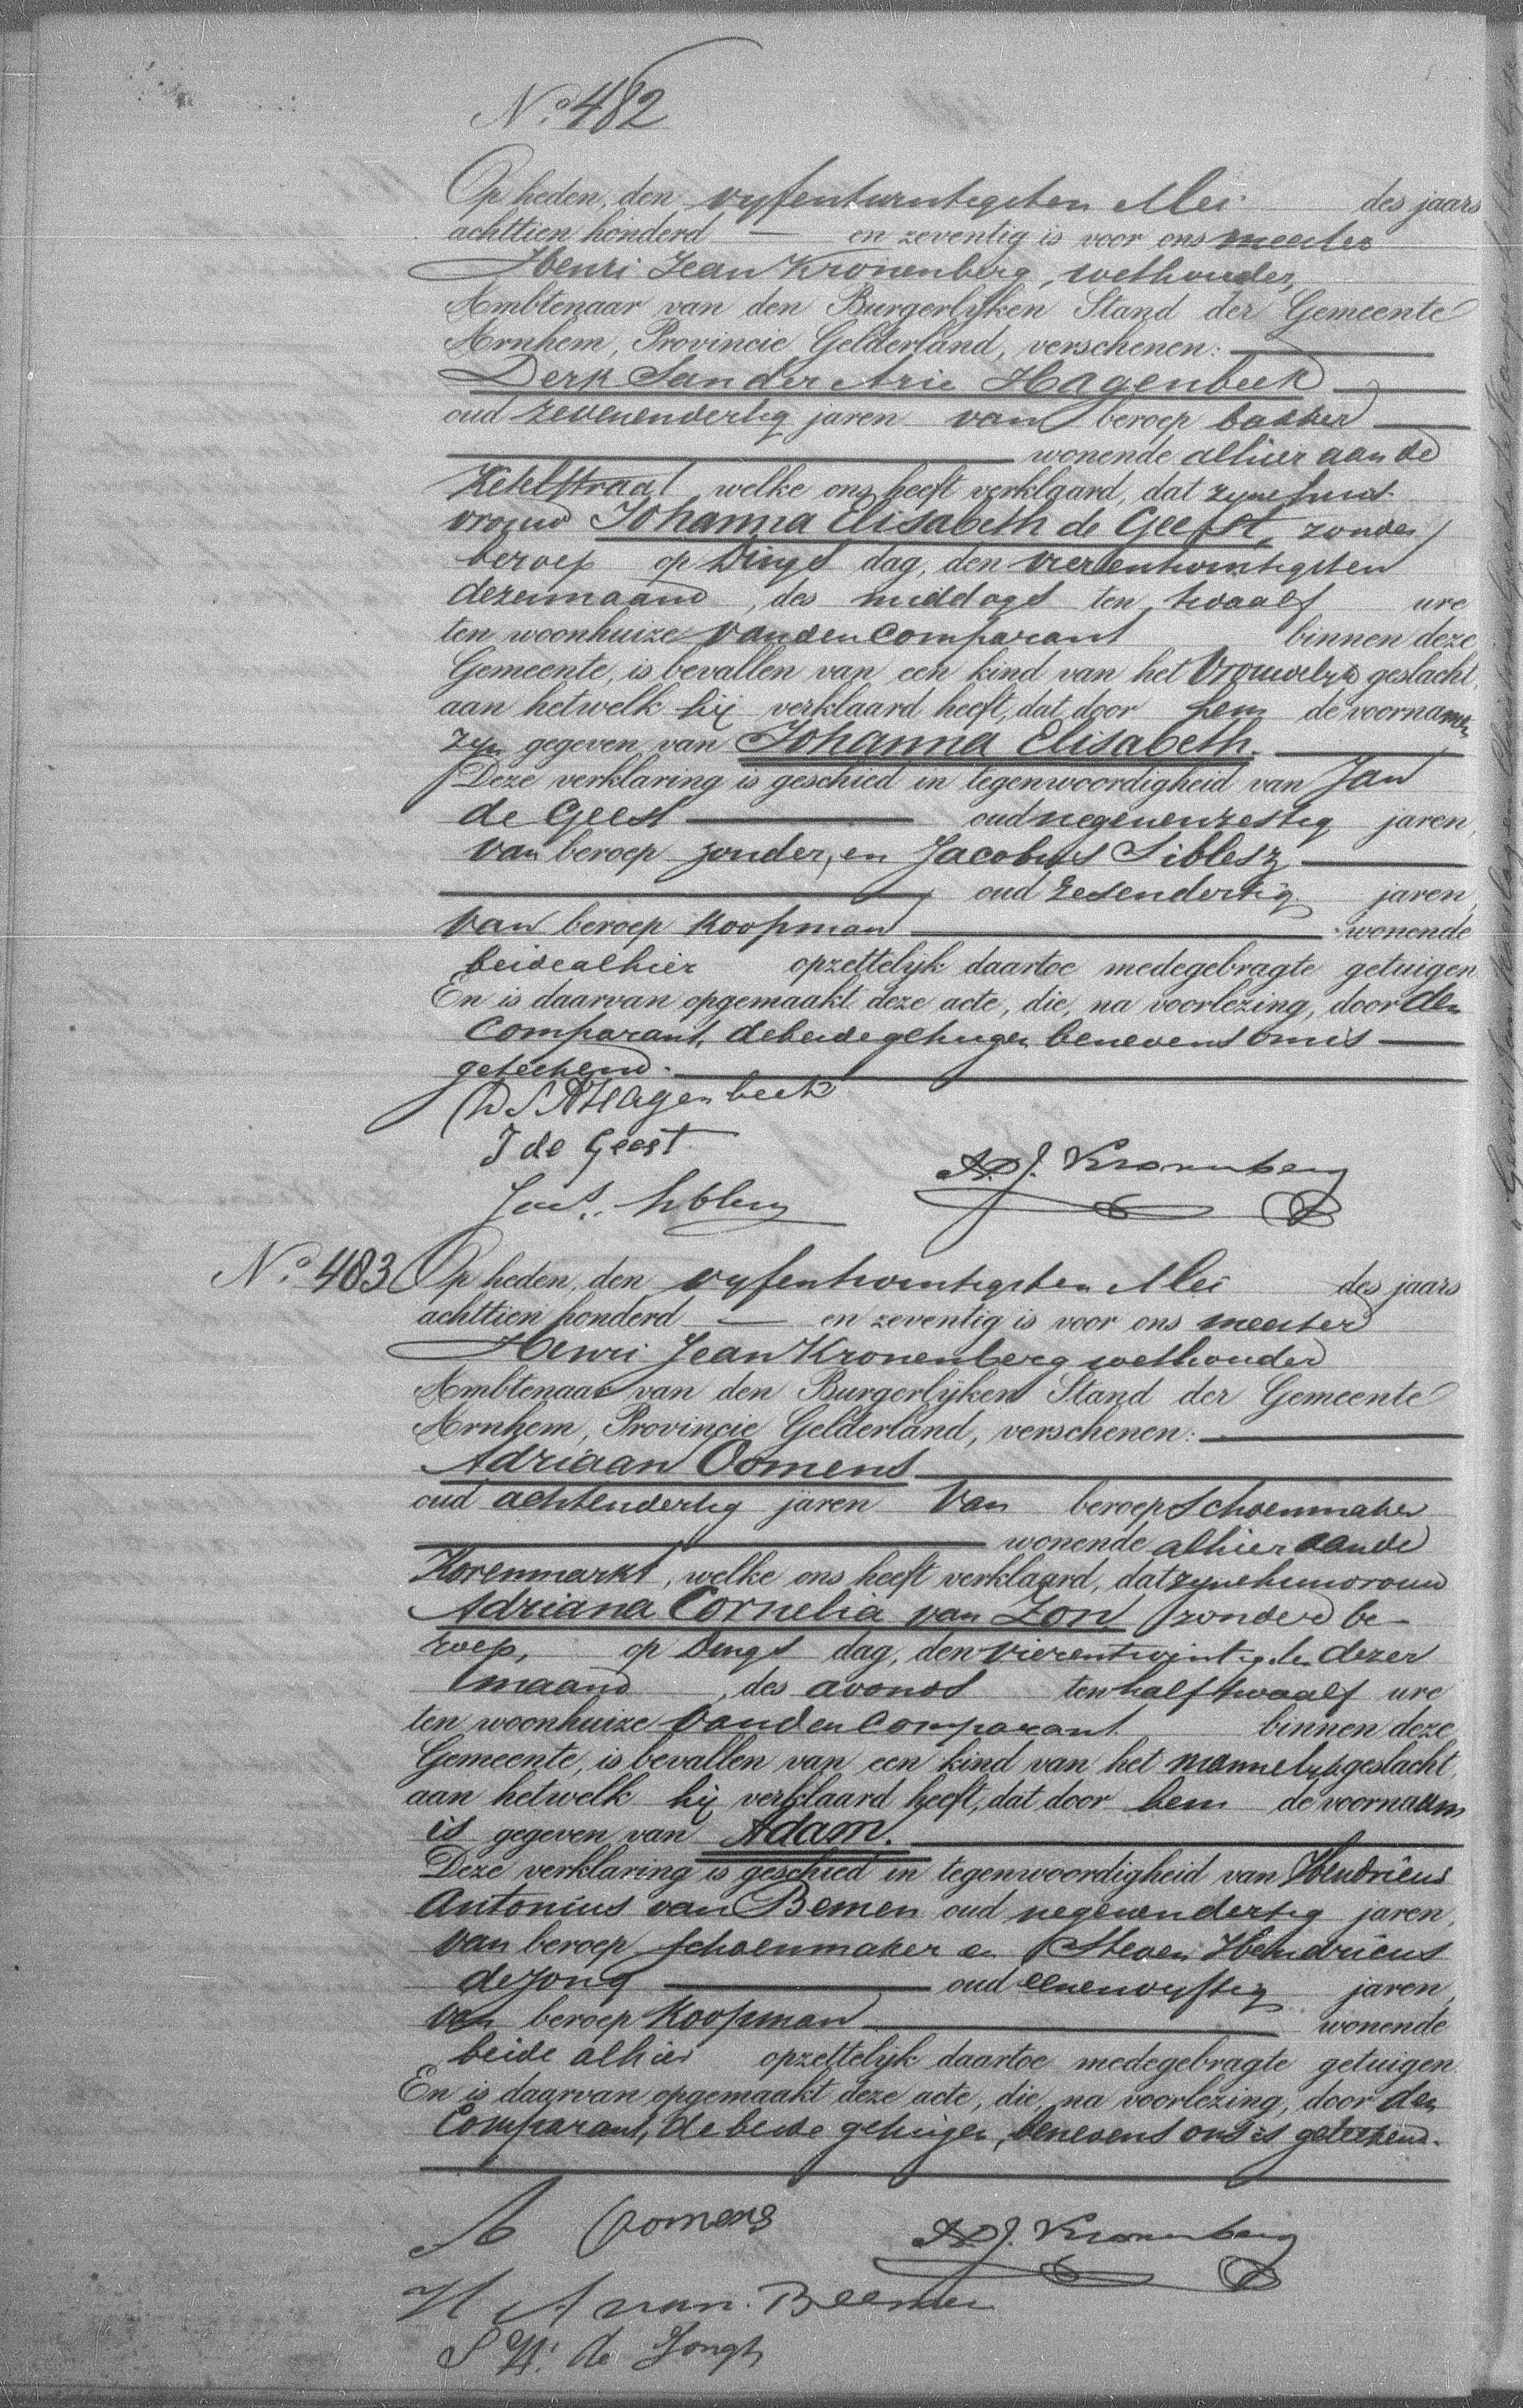 No. 482
Op heden, den vyfentwintigsten Mei des jaars
achttien honderd — en zeventig is voor ons meester
Henri Jean Kronenberg, wethouder,
Ambtenaar van den Burgerlijken Stand der Gemeente
Arnhem, Provincie Gelderland, verschenen:
Derk Sander Arie Hagenbeek
oud zevenendertig jaren van beroep bakker
wonende alhier aan de
Ketelstraat welke ons heeft verklaard, dat zyne huis-
vrouw Johanna Elisabeth de Geest, zonder
beroep op Dings dag, den vierentwintigsten
dezer maand, des middags ten twaalf ure
ten woonhuize van den Comparant binnen deze
Gemeente, is bevallen van een kind van het vrouwelyk geslacht,
aan hetwelk hij verklaard heeft, dat door hem de voornamen
zyn gegeven van Johanna Elisabeth.
Deze verklaring is geschied in tegenwoordigheid van Jan
de Geest oud negenenzestig jaren,
van beroep zonder, en Jacobus Siblesz
oud zesendertig jaren,
van beroep koopman wonende
beide alhier opzettelyk daartoe medegebragte getuigen.
En is daarvan opgemaakt deze acte, die, na voorlezing, door den
Comparant, de beide getuigen benevens ons is
geteekend.
D S A Hagenbeek
J de Geest
H. J. Kronenberg
Jac.s Siblesz
No. 483 Op heden, den vyfentwintigsten Mei des jaars
achttien honderd — en zeventig is voor ons meester
Henri Jean Kronenberg wethouder
Ambtenaar van den Burgerlijken Stand der Gemeente
Arnhem, Provincie Gelderland, verschenen:
Adriaan Oomens
oud achtendertig jaren van beroep Schoenmaker
wonende alhier aan de
Korenmarkt, welke ons heeft verklaard, dat zyne huisvrouw
Adriana Cornelia van Zon, zonder be-
roep, op Dings dag, den vierentwintigsten dezer
maand, des avonds ten half twaalf ure
ten woonhuize van den Comparant binnen deze
Gemeente, is bevallen van een kind van het mannelyk geslacht,
aan hetwelk hij verklaard heeft, dat door hem de voornaam
is gegeven van Adam.
Deze verklaring is geschied in tegenwoordigheid van Hendricus
Antonius van Bemen oud negenendertig jaren,
van beroep schoenmaker en Steven Hendricus
de Jong oud eenenvyftig jaren,
van beroep koopman wonende
beide alhier opzettelyk daartoe medegebragte getuigen.
En is daarvan opgemaakt deze acte, die, na voorlezing, door den
Comparant, de beide getuigen, benevens ons is geteekend.
A Oomens
H. J. Kronenberg
H A van Beemen
S H. de Jongh